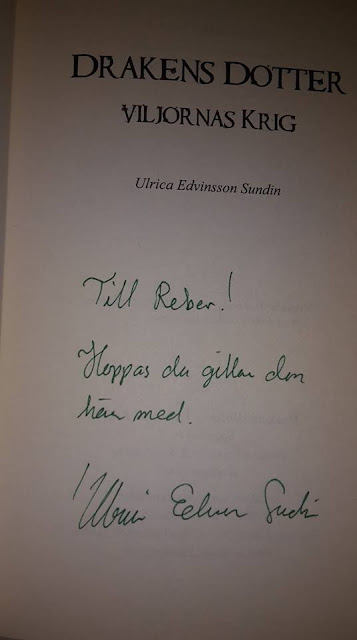 DRAKENS DOTTER
VILJORNAS KRIG
Ulrica Edvinsson Sundin
Till Reber!
Hoppas du gillar den
här med.
/Ulrica Edvinsson Sundin